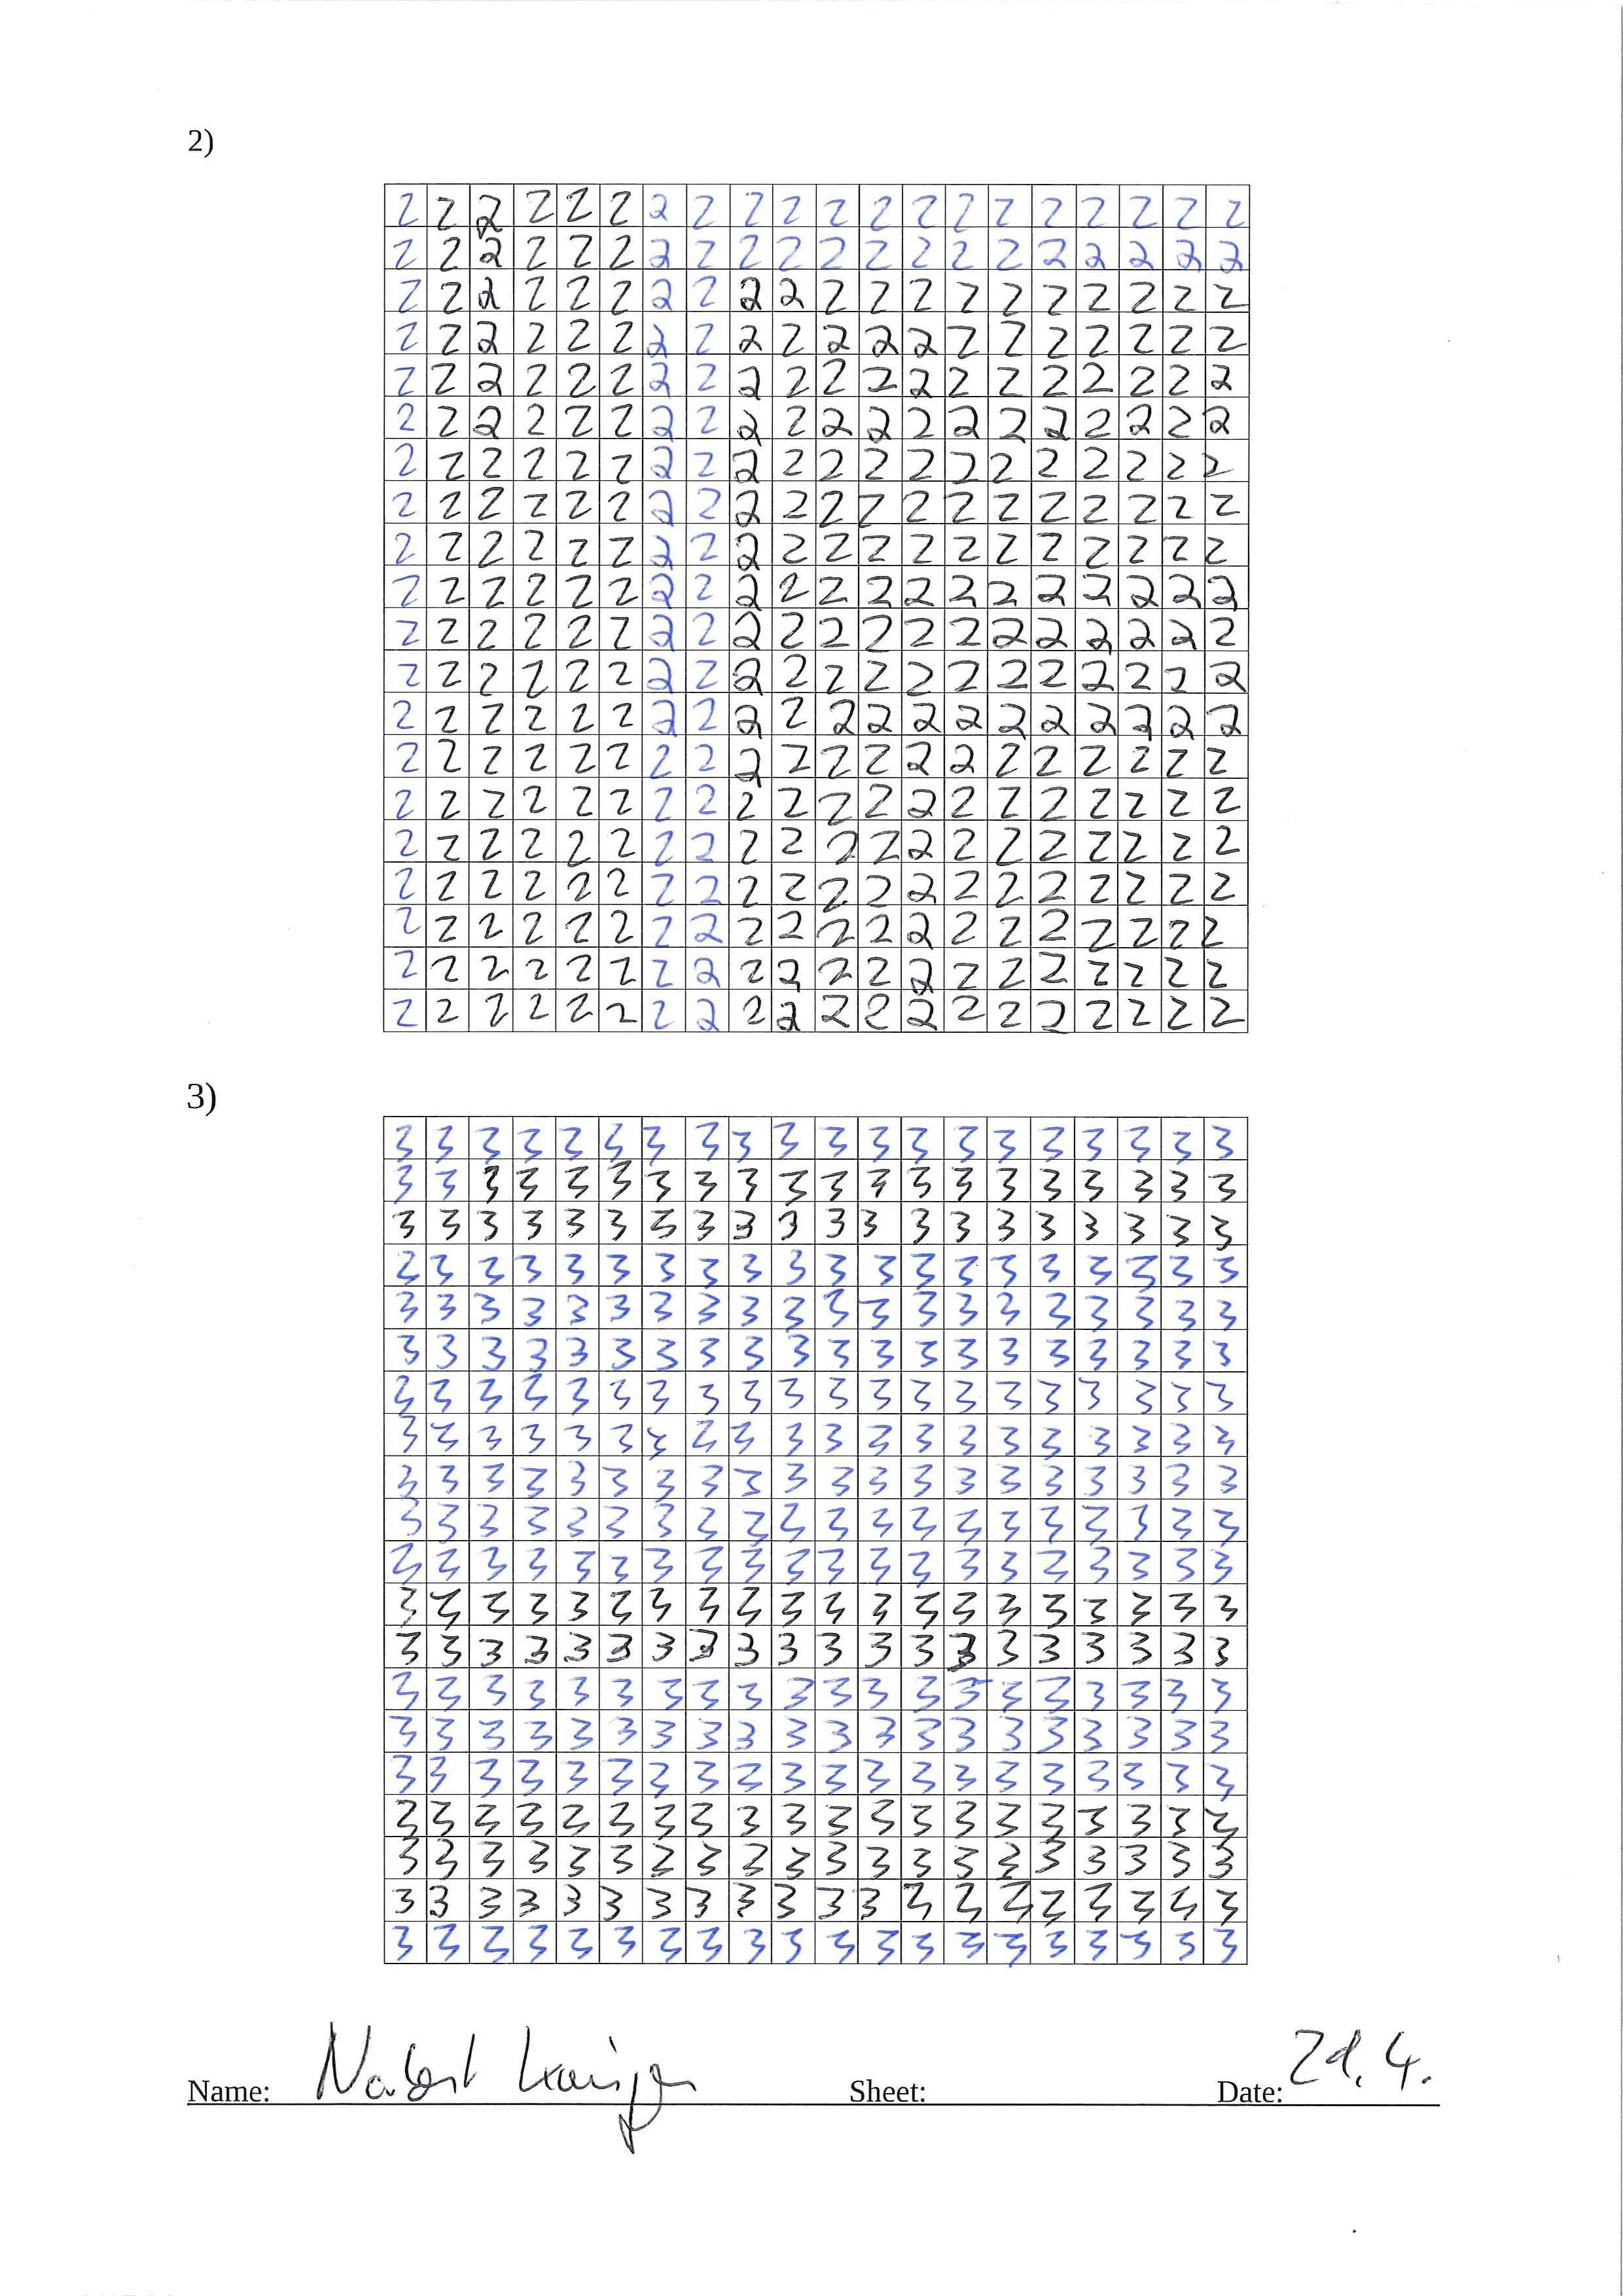 2)
2 2 2 2 2 2 2 2 2 2 2 2 2 2 2 2 2 2 2 2
2 2 2 2 2 2 2 2 2 2 2 2 2 2 2 2 2 2 2 2
2 2 2 2 2 2 2 2 2 2 2 2 2 2 2 2 2 2 2 2
2 2 2 2 2 2 2 2 2 2 2 2 2 2 2 2 2 2 2 2
2 2 2 2 2 2 2 2 2 2 2 2 2 2 2 2 2 2 2 2
2 2 2 2 2 2 2 2 2 2 2 2 2 2 2 2 2 2 2 2
2 2 2 2 2 2 2 2 2 2 2 2 2 2 2 2 2 2 2 2
2 2 2 2 2 2 2 2 2 2 2 2 2 2 2 2 2 2 2 2
2 2 2 2 2 2 2 2 2 2 2 2 2 2 2 2 2 2 2 2
2 2 2 2 2 2 2 2 2 2 2 2 2 2 2 2 2 2 2 2
2 2 2 2 2 2 2 2 2 2 2 2 2 2 2 2 2 2 2 2
2 2 2 2 2 2 2 2 2 2 2 2 2 2 2 2 2 2 2 2
2 2 2 2 2 2 2 2 2 2 2 2 2 2 2 2 2 2 2 2
2 2 2 2 2 2 2 2 2 2 2 2 2 2 2 2 2 2 2 2
2 2 2 2 2 2 2 2 2 2 2 2 2 2 2 2 2 2 2 2
2 2 2 2 2 2 2 2 2 2 2 2 2 2 2 2 2 2 2 2
2 2 2 2 2 2 2 2 2 2 2 2 2 2 2 2 2 2 2 2
2 2 2 2 2 2 2 2 2 2 2 2 2 2 2 2 2 2 2 2
2 2 2 2 2 2 2 2 2 2 2 2 2 2 2 2 2 2 2 2
2 2 2 2 2 2 2 2 2 2 2 2 2 2 2 2 2 2 2 2
3)
3 3 3 3 3 3 3 3 3 3 3 3 3 3 3 3 3 3 3 3
3 3 3 3 3 3 3 3 3 3 3 3 3 3 3 3 3 3 3 3
3 3 3 3 3 3 3 3 3 3 3 3 3 3 3 3 3 3 3 3
3 3 3 3 3 3 3 3 3 3 3 3 3 3 3 3 3 3 3 3
3 3 3 3 3 3 3 3 3 3 3 3 3 3 3 3 3 3 3 3
3 3 3 3 3 3 3 3 3 3 3 3 3 3 3 3 3 3 3 3
3 3 3 3 3 3 3 3 3 3 3 3 3 3 3 3 3 3 3 3
3 3 3 3 3 3 3 3 3 3 3 3 3 3 3 3 3 3 3 3
3 3 3 3 3 3 3 3 3 3 3 3 3 3 3 3 3 3 3 3
3 3 3 3 3 3 3 3 3 3 3 3 3 3 3 3 3 3 3 3
3 3 3 3 3 3 3 3 3 3 3 3 3 3 3 3 3 3 3 3
3 3 3 3 3 3 3 3 3 3 3 3 3 3 3 3 3 3 3 3
3 3 3 3 3 3 3 3 3 3 3 3 3 3 3 3 3 3 3 3
3 3 3 3 3 3 3 3 3 3 3 3 3 3 3 3 3 3 3 3
3 3 3 3 3 3 3 3 3 3 3 3 3 3 3 3 3 3 3 3
3 3 3 3 3 3 3 3 3 3 3 3 3 3 3 3 3 3 3 3
3 3 3 3 3 3 3 3 3 3 3 3 3 3 3 3 3 3 3 3
3 3 3 3 3 3 3 3 3 3 3 3 3 3 3 3 3 3 3 3
3 3 3 3 3 3 3 3 3 3 3 3 3 3 3 3 3 3 3 3
3 3 3 3 3 3 3 3 3 3 3 3 3 3 3 3 3 3 3 3
Name: Sheet: Date: 21.4.